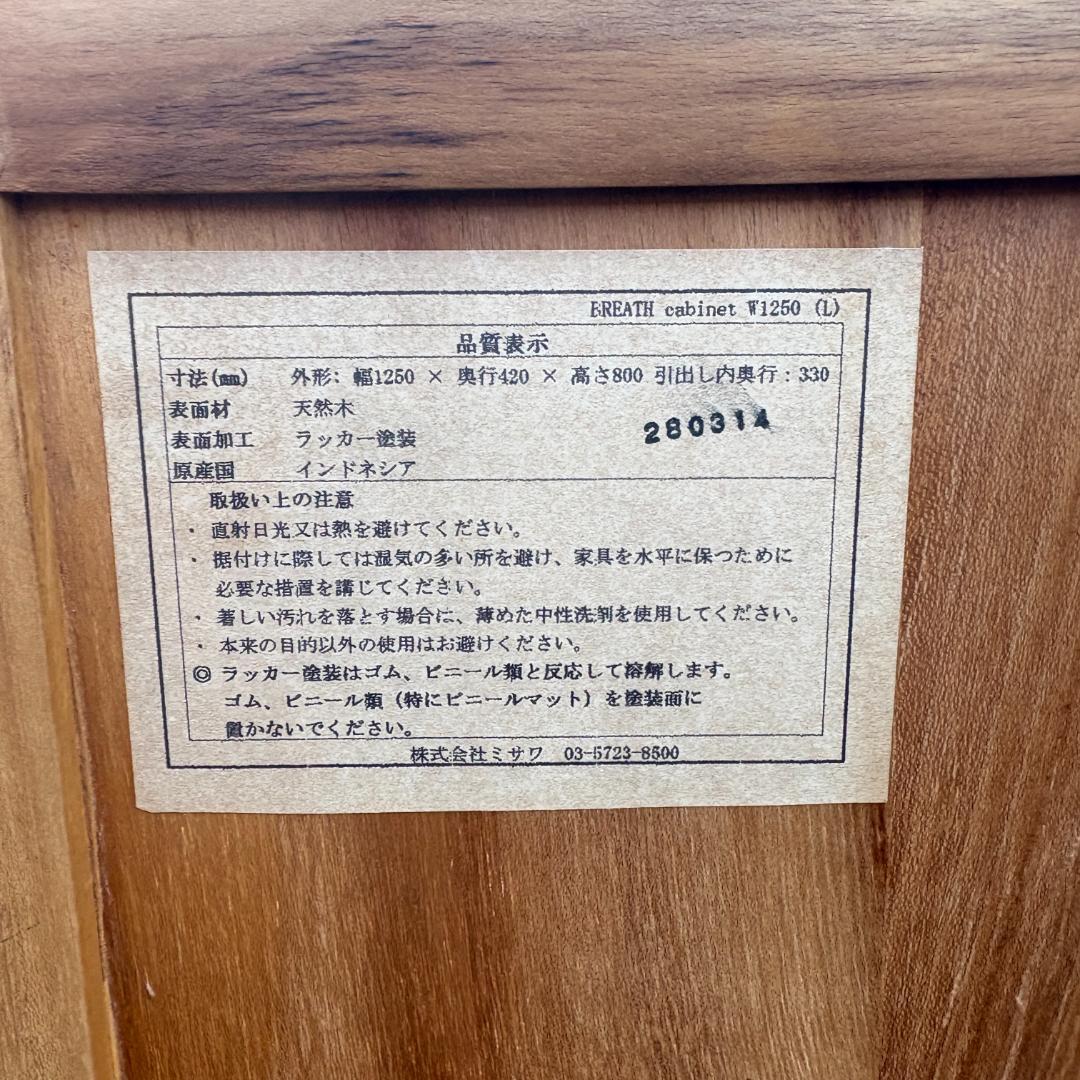 BREATH cabinet W1250 (L)
品質表示
寸法(mm) 外形: 幅1250 × 奥行420 × 高さ800 引出し内奥行：330
表面材 天然木
280314
表面加工 ラッカー塗装
原産国 インドネシア
取扱い上の注意
・ 直射日光又は熱を避けてください。
・ 据付けに際しては湿気の多い所を避け、家具を水平に保つために
必要な措置を講じてください。
・ 著しい汚れを落とす場合は、薄めた中性洗剤を使用してください。
・ 本来の目的以外の使用はお避けください。
◎ ラッカー塗装はゴム、ビニール類と反応して溶解します。
ゴム、ビニール類（特にビニールマット）を塗装面に
置かないでください。
株式会社ミサワ 03-5723-8500